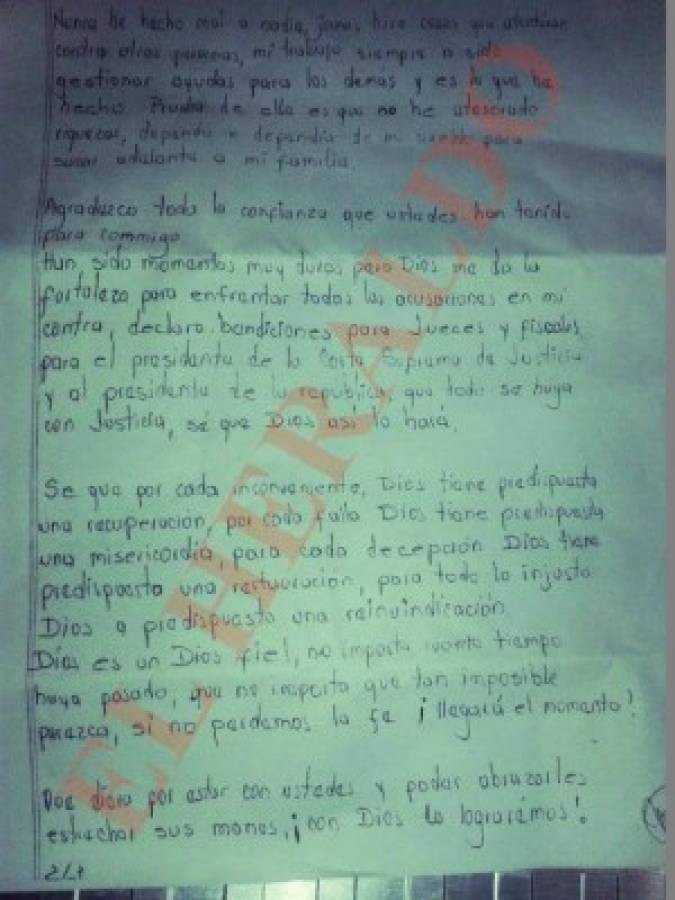 Nunca he hecho mal a nadie, jamas hice cosas que
contra otras personas, mi trabajo siempre a sido
gestionar ayudas para los demas y es lo que he
hecho. Prueba de ello es que no he atesorado
riquezas, dependo o dependia de mi para
adelante a mi familia.
Agradezco toda la confianza que ustedes han tenido
para commigo
Han sido momentos muy duros pero Dios me da la
fortaleza para enfrentar todas las acusaciones en mi
contra, declaro bendiciones para Jueces y fiscales
para el presidente de la Corte Suprema de Justicia
y al presidente de la republica, que todo se haga
con Justicia, sé que Dios así lo hará.
Se que por cada inconveniente, Dios tiene predispuesta
una recuperación, por cada fallo Dios tiene predispuesta
una misericordia, para cada decepción Dios tiene
predispuesto una restauración, para todo lo injusto
Dios a predispuesto una reinvindicación.
Dios es un Dios fiel, no importa cuanto tiempo
haya pasado, que no importa que tan imposible
parezca, si no perdemos la fe ¡llegará el momento!
por estar con ustedes y poder abrazarles
estrechar sus manos, ¡con Dios lo lograremos!
EL HERALDO